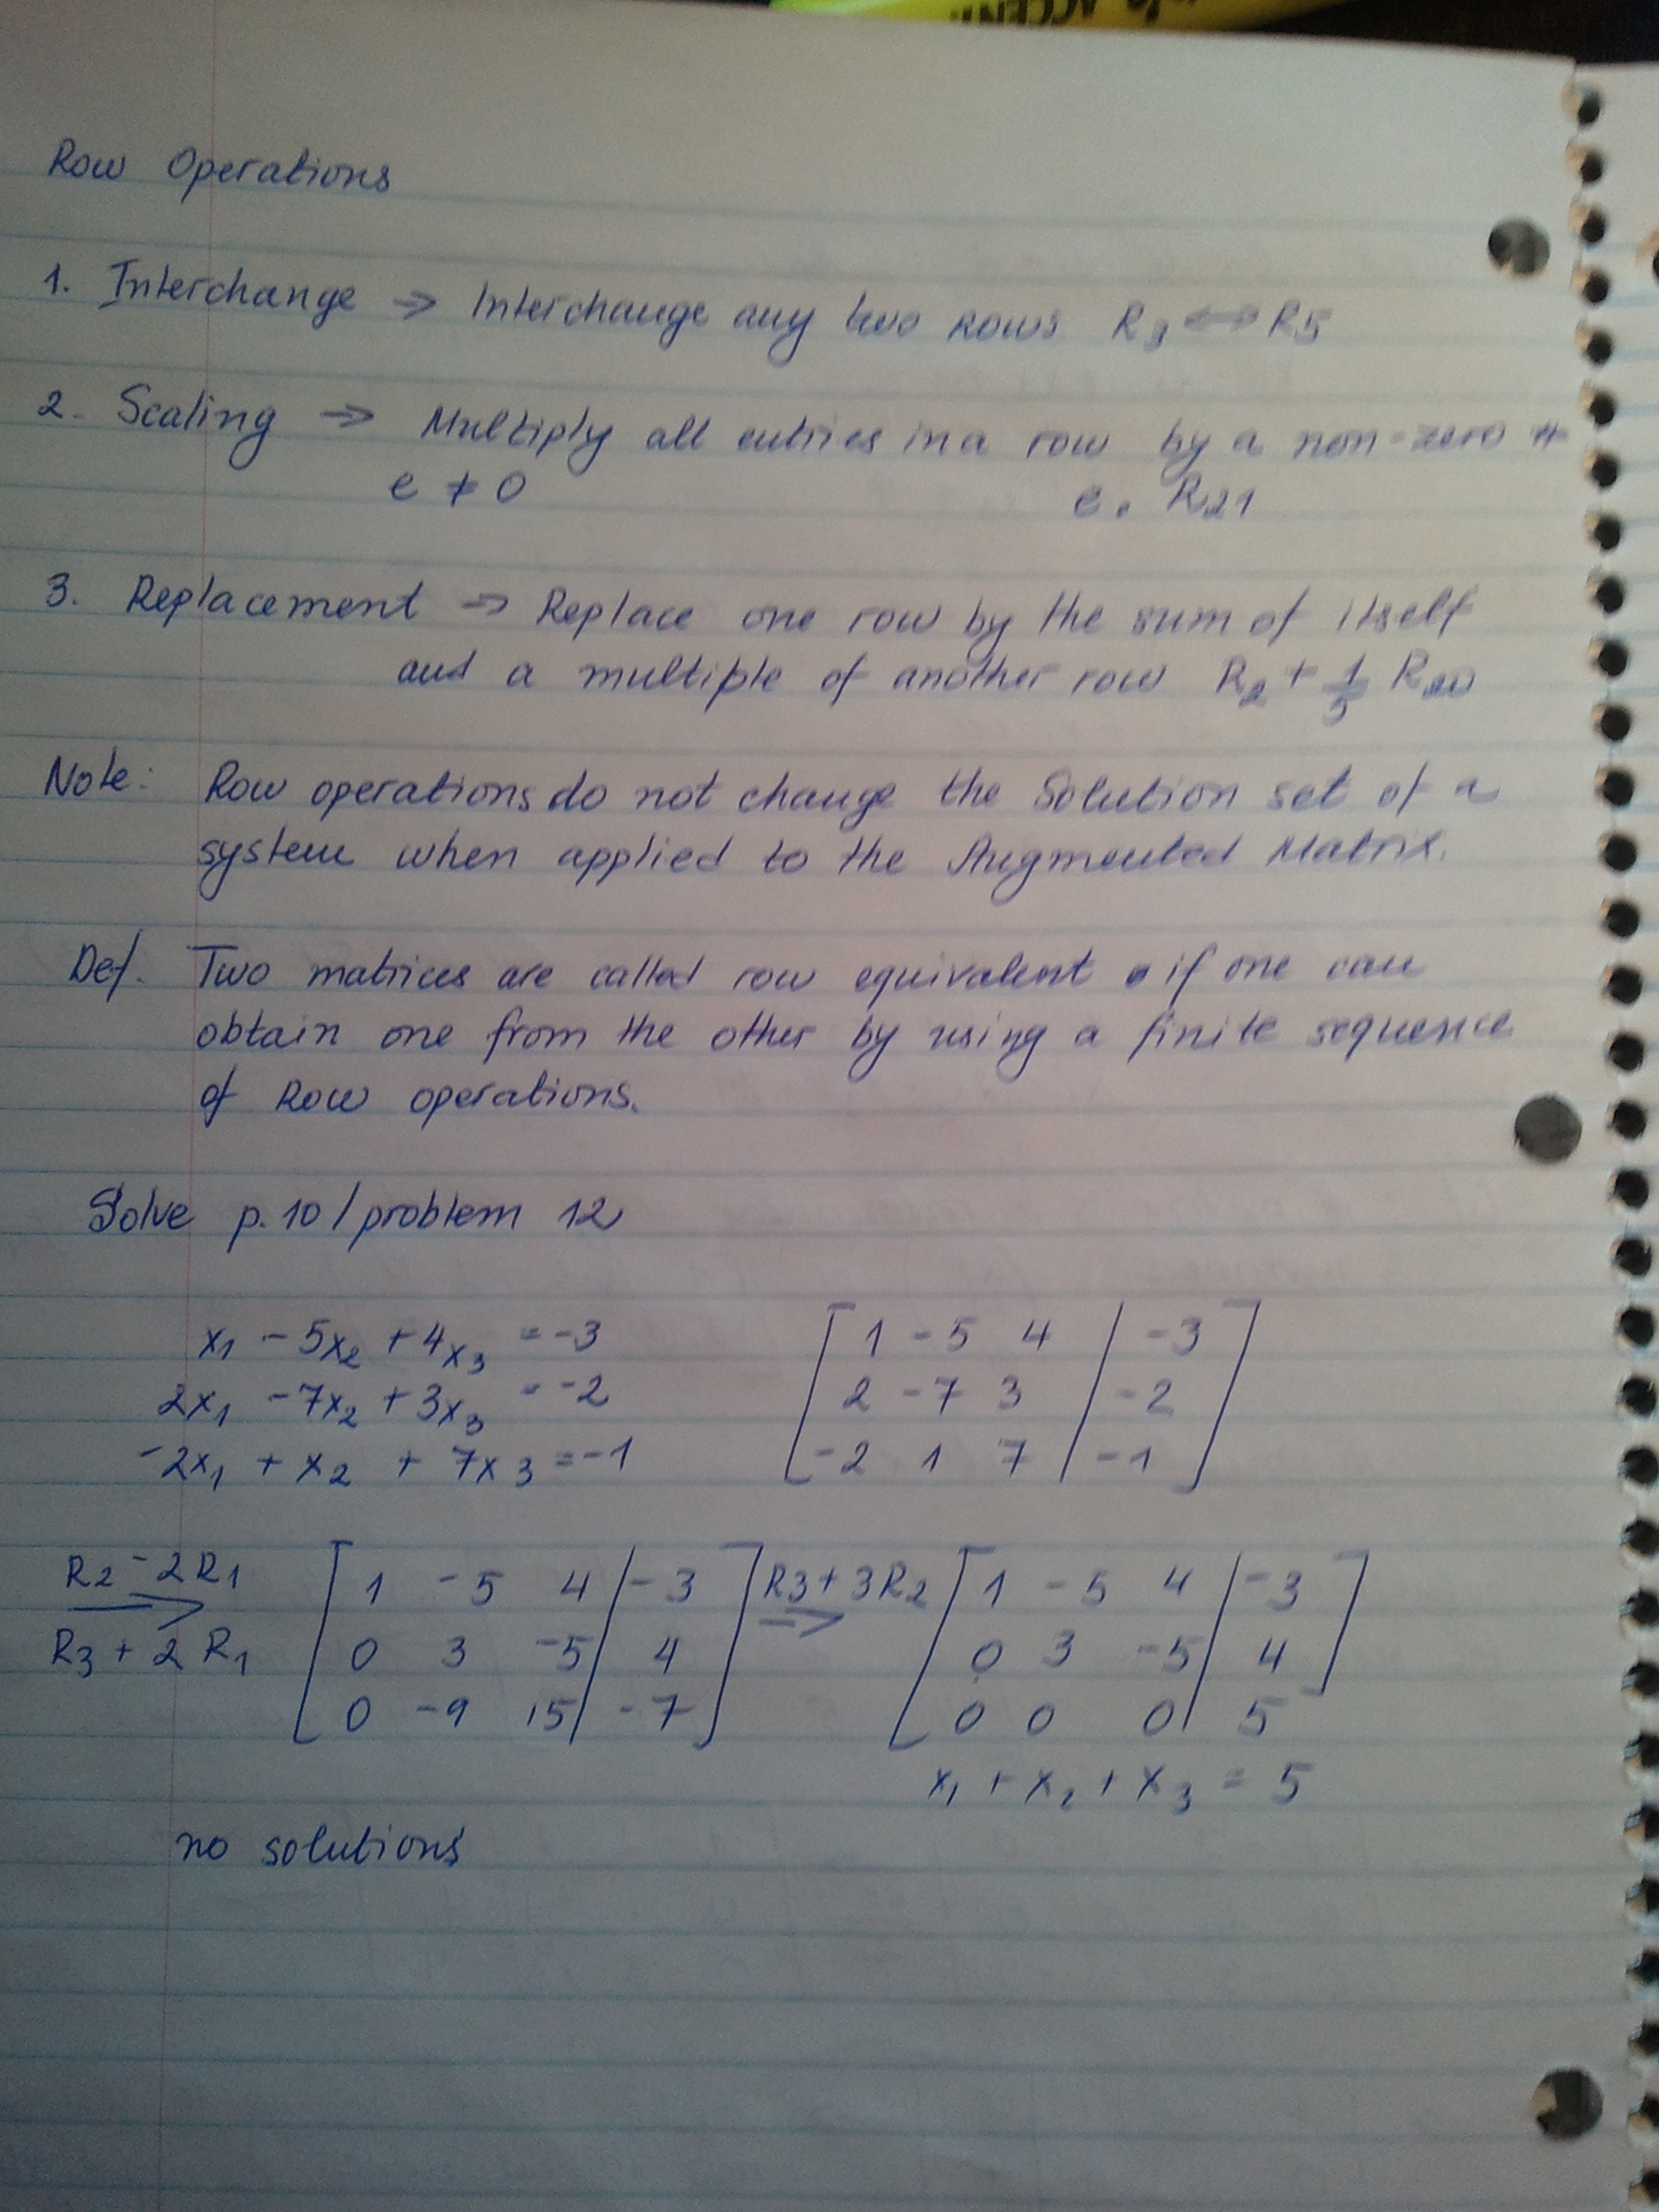 ACCENT
Row Operations
1. Interchange → Interchange any two rows R3 ↔ R5
2. Scaling → Multiply all entries in a row by a non-zero #
c ≠ 0 c. R21
3. Replacement → Replace one row by the sum of itself
and a multiple of another row R2 + 1/5 R20
Note: Row operations do not change the Solution set of a
system when applied to the Augmented Matrix.
Def. Two matrices are called row equivalent if one can
obtain one from the other by using a finite sequence
of Row operations.
Solve p.10/problem 12
x1 - 5x2 + 4x3 = -3 [ 1 -5 4 | -3 ]
2x1 - 7x2 + 3x3 = -2 [ 2 -7 3 | -2 ]
-2x1 + x2 + 7x3 = -1 [ -2 1 7 | -1 ]
R2 - 2R1 [ 1 -5 4 | -3 ] R3 + 3R2 [ 1 -5 4 | -3 ]
R3 + 2R1 [ 0 3 -5 | 4 ] ⇒ [ 0 3 -5 | 4 ]
[ 0 -9 15 | -7 ] [ 0 0 0 | 5 ]
x1 + x2 + x3 = 5
no solutions